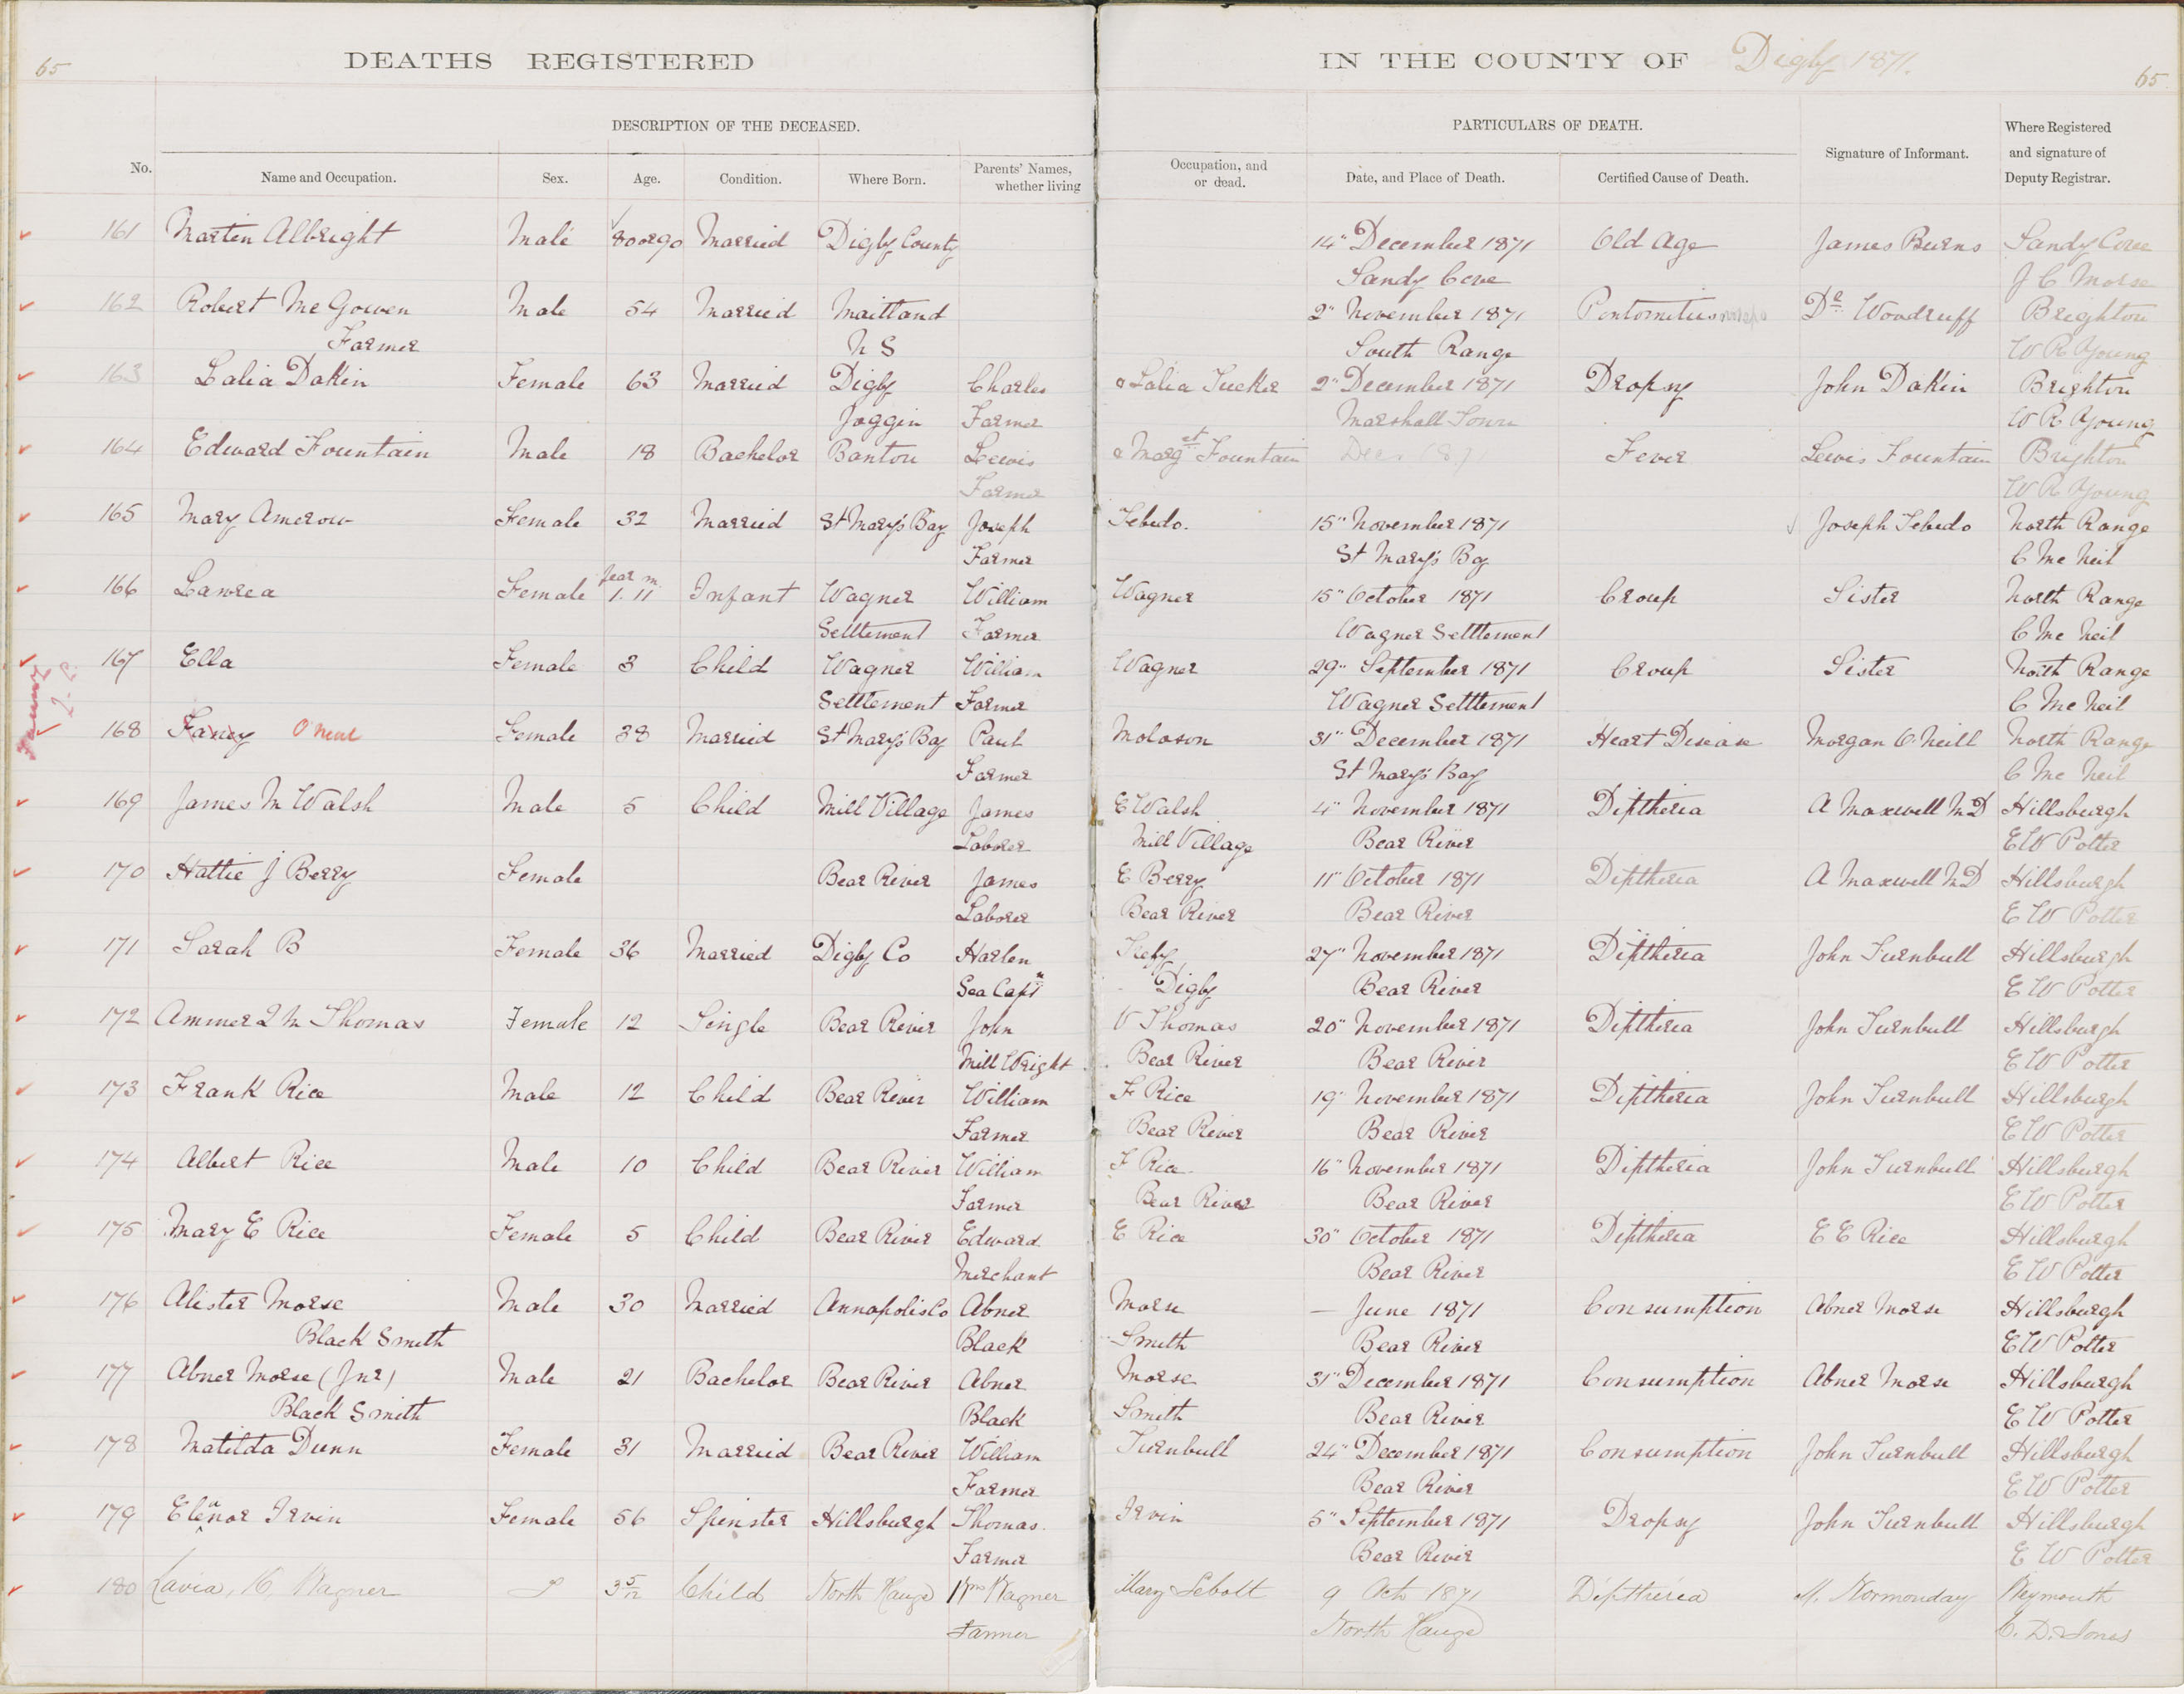 65 DEATHS REGISTERED IN THE COUNTY OF Digby 1871. 65
DESCRIPTION OF THE DECEASED. PARTICULARS OF DEATH. Where Registered
No. Name and Occupation. Sex. Age. Condition. Where Born. Parents' Names, Occupation, and Date, and Place of Death. Certified Cause of Death. Signature of Informant. and signature of
whether living or dead. Deputy Registrar.
161 Martin Albright Male 80 or 90 Married Digby County 14" December 1871 Old Age James Burns Sandy Cove
Sandy Cove J C Morse
162 Robert Mc Gowen Male 54 Married Maitland 2" November 1871 Dr Woodruff Brighton
Farmer N S South Range W R Young
163 Lalia Dakin Female 63 Married Digby Charles & Lalia Tucker 2" December 1871 Dropsy John Dakin Brighton
Joggin Farmer Marshall Town W R Young
164 Edward Fountain Male 18 Bachelor Banton Lewis & Marget Fountain Dec. 1871 Fever Lewis Fountain Brighton
Farmer W R Young
165 Mary Amerow Female 32 Married St Mary's Bay Joseph Tebedo. 15" November 1871 Joseph Tebedo North Range
Farmer St Mary's By C Mc Neil
166 Lawrea Female year m 1. 11 Infant Wagner William Wagner 15" October 1871 Croup Sister North Range
Settlement Farmer Wagner Settlement C Mc Neil
167 Ella Female 3 Child Wagner William Wagner 29" September 1871 Croup Sister North Range
Settlement Farmer Wagner Settlement C Mc Neil
168 Fancy O'Neil Female 38 Married St Mary's Bay Paul Moloson 31" December 1871 Heart Disease Morgan O'Neill North Range
Farmer St Mary's Bay C Mc Neil
169 James M Walsh Male 5 Child Mill Village James E Walsh 4" November 1871 Diptheria A Maxwell MD Hillsburgh
Laborer Mill Village Bear River E W Potter
170 Hattie J Berry Female Bear River James E Berry 11" October 1871 Diptheria A Maxwell MD Hillsburgh
Laborer Bear River Bear River E W Potter
171 Sarah B Female 36 Married Digby Co Harlen 27" November 1871 Diptheria John Turnbull Hillsburgh
Sea Capt Digby Bear River E W Potter
172 Ammer 2 M Thomas Female 12 Single Bear River John V Thomas 20" November 1871 Diptheria John Turnbull Hillsburgh
Mill Wright Bear River Bear River E W Potter
173 Frank Rice Male 12 Child Bear River William F Rice 19" November 1871 Diptheria John Turnbull Hillsburgh
Farmer Bear River Bear River E W Potter
174 Albert Rice Male 10 Child Bear River William F Rice 16" November 1871 Diptheria John Turnbull Hillsburgh
Farmer Bear River Bear River E W Potter
175 Mary E Rice Female 5 Child Bear River Edward E Rice 30" October 1871 Diptheria E E Rice Hillsburgh
Merchant Bear River E W Potter
176 Alister Morse Male 30 Married Annapolis Co Abner Morse — June 1871 Consumption Abner Morse Hillsburgh
Black Smith Black Smith Bear River E W Potter
177 Abner Morse (Jnr) Male 21 Bachelor Bear River Abner Morse 31" December 1871 Consumption Abner Morse Hillsburgh
Black Smith Black Smith Bear River E W Potter
178 Matilda Dunn Female 31 Married Bear River William Turnbull 24" December 1871 Consumption John Turnbull Hillsburgh
Farmer Bear River E W Potter
179 Elenor Irvin Female 56 Spinster Hillsburgh Thomas Irvin 5" September 1871 Dropsy John Turnbull Hillsburgh
Farmer Bear River E W Potter
180 Lavia, K, Wagner 3 5/12 Child North Range Wm Wagner Mary Sebolt 9 Oct 1871 Diptheria M. Normonday Weymouth
Farmer North Range C. D. Jones